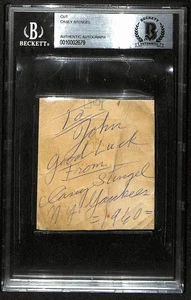 BECKETT
CUT
CASEY STENGEL
AUTHENTIC AUTOGRAPH
0010002679
BECKETT
To
John
Good Luck
From
Casey Stengel
N Y Yankees
- 1960 -